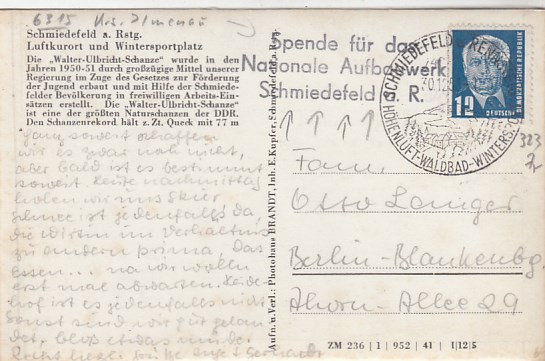 6315 Krs. Ilmenau
Schmiedefeld a. Rstg.
Luftkurort und Wintersportplatz
Die „Walter-Ulbricht-Schanze" wurde in den
Jahren 1950-51 durch großzügige Mittel unserer
Regierung im Zuge des Gesetzes zur Förderung
der Jugend erbaut und mit Hilfe der Schmiede-
felder Bevölkerung in freiwilligen Arbeits-Ein-
sätzen erstellt. Die „Walter-Ulbricht-Schanze"
ist eine der größten Naturschanzen der DDR.
Den Schanzenrekord hält z.Zt. Queck mit 77 m
Ganz soweit
wir es zwar noch nicht,
aber bald ist es bestimmt
soweit. Heute nachmittag
holen wir uns Skier
Schnee ist jedenfalls da,
die Wirtin im Verhältnis
zu andern prima, Das
essen... na wir wollen
erst mal abwarten.
hof ist es jedenfalls nicht
Sonst sind wir gut gelan-
det, bloß etwas müde.
Recht herzl. Grüße
Aufn. u. Verl.: Photohaus BRANDT, Inh. E. Kupfer, Schmiedefeld a. Rstg.
Spende für das
Nationale Aufbauwerk
Schmiedefeld a. R.
SCHMIEDEFELD
HÖHENLUFT-WALDBAD-WINTERSP
12
DEUTSCHE
DEMOKRATISCHE REPUBLIK
323
Fam.
Otto Langer
Berlin-Blankenbg
Thorn-Allee 29
ZM 236 | 1 | 952 | 41 | 1|12|5